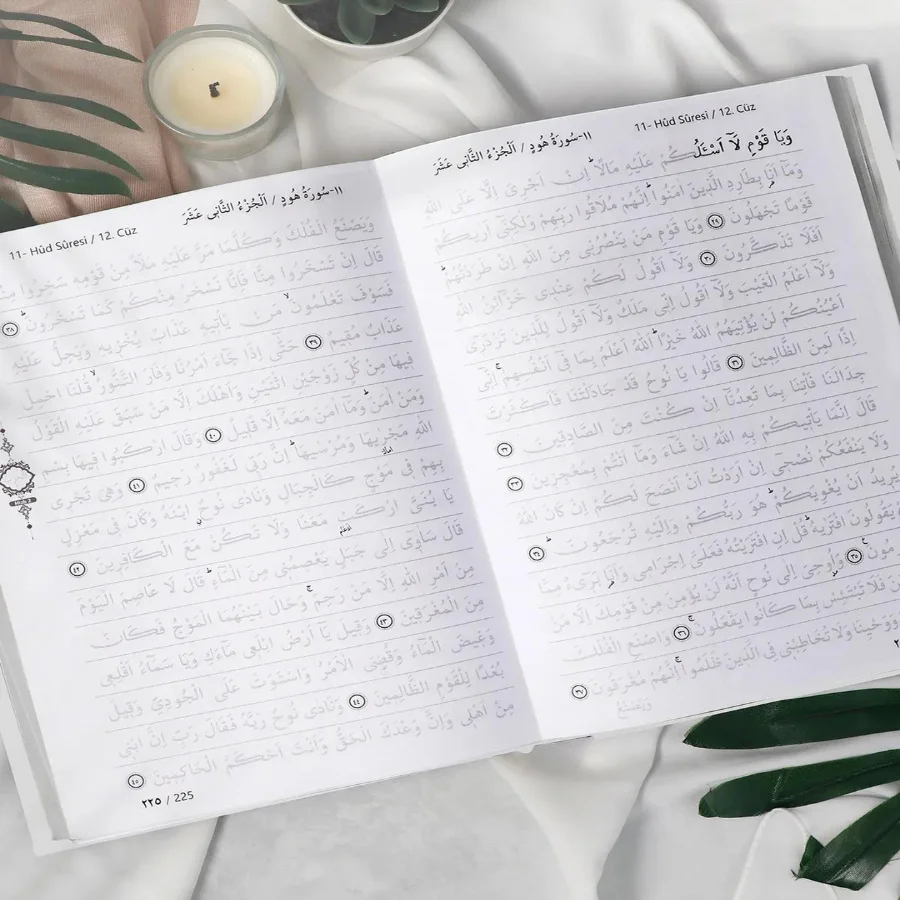 ١١-سُورَةُ هُودٍ / اَلْجُزْءُ الثَّانِي عَشَرَ
11- Hûd Sûresi / 12. Cüz
وَيَا قَوْمِ لَٓا اَسْـَٔلُكُمْ عَلَيْهِ مَالًاۜ اِنْ اَجْرِيَ اِلَّا عَلَى اللّٰهِ
وَمَٓا اَنَا۬ بِطَارِدِ الَّذ۪ينَ اٰمَنُواۜ اِنَّهُمْ مُلَاقُوا رَبِّهِمْ وَلٰكِنّ۪ٓي اَرٰيكُمْ
قَوْمًا تَجْهَلُونَ ٢٩ وَيَا قَوْمِ مَنْ يَنْصُرُن۪ي مِنَ اللّٰهِ اِنْ طَرَدْتُهُمْۜ
اَفَلَا تَذَكَّرُونَ ٣٠ وَلَٓا اَقُولُ لَكُمْ عِنْد۪ي خَزَٓائِنُ اللّٰهِ
وَلَٓا اَعْلَمُ الْغَيْبَ وَلَٓا اَقُولُ اِنّ۪ي مَلَكٌ وَلَٓا اَقُولُ لِلَّذ۪ينَ تَزْدَر۪ٓي
اَعْيُنُكُمْ لَنْ يُؤْتِيَهُمُ اللّٰهُ خَيْرًاۜ اَللّٰهُ اَعْلَمُ بِمَا ف۪ٓي اَنْفُسِهِمْۚ اِنّ۪ٓي
اِذًا لَمِنَ الظَّالِم۪ينَ ٣١ قَالُوا يَا نُوحُ قَدْ جَادَلْتَنَا فَاَكْثَرْتَ
جِدَالَنَا فَأْتِنَا بِمَا تَعِدُنَٓا اِنْ كُنْتَ مِنَ الصَّادِق۪ينَ ٣٢
قَالَ اِنَّمَا يَأْت۪يكُمْ بِهِ اللّٰهُ اِنْ شَٓاءَ وَمَٓا اَنْتُمْ بِمُعْجِز۪ينَ ٣٣
وَلَا يَنْفَعُكُمْ نُصْح۪ٓي اِنْ اَرَدْتُ اَنْ اَنْصَحَ لَكُمْ اِنْ كَانَ اللّٰهُ
يُر۪يدُ اَنْ يُغْوِيَكُمْۜ هُوَ رَبُّكُمْ وَاِلَيْهِ تُرْجَعُونَۜ ٣٤
يَقُولُونَ افْتَرٰيهُۜ قُلْ اِنِ افْتَرَيْتُهُ فَعَلَيَّ اِجْرَام۪ي وَاَنَا۬ بَر۪ٓيءٌ مِمَّا
٣٥ وَاُو۫حِيَ اِلٰى نُوحٍ اَنَّهُ لَنْ يُؤْمِنَ مِنْ قَوْمِكَ اِلَّا مَنْ
فَلَا تَبْتَئِسْ بِمَا كَانُوا يَفْعَلُونَۚ ٣٦ وَاصْنَعِ الْفُلْكَ
وَوَحْيِنَا وَلَا تُخَاطِبْن۪ي فِي الَّذ۪ينَ ظَلَمُواۚ اِنَّهُمْ مُغْرَقُونَ ٣٧
وَيَصْنَعُ
١١-سُورَةُ هُودٍ / اَلْجُزْءُ الثَّانِي عَشَرَ
11- Hûd Sûresi / 12. Cüz
وَيَصْنَعُ الْفُلْكَ وَكُلَّمَا مَرَّ عَلَيْهِ مَلَاٌ مِنْ قَوْمِه۪ سَخِرُوا
قَالَ اِنْ تَسْخَرُوا مِنَّا فَاِنَّا نَسْخَرُ مِنْكُمْ كَمَا تَسْخَرُونَۜ ٣٨
فَسَوْفَ تَعْلَمُونَۙ مَنْ يَأْت۪يهِ عَذَابٌ يُخْز۪يهِ وَيَحِلُّ عَلَيْهِ
عَذَابٌ مُق۪يمٌ ٣٩ حَتّٰٓى اِذَا جَٓاءَ اَمْرُنَا وَفَارَ التَّنُّورُۙ قُلْنَا احْمِلْ
ف۪يهَا مِنْ كُلٍّ زَوْجَيْنِ اثْنَيْنِ وَاَهْلَكَ اِلَّا مَنْ سَبَقَ عَلَيْهِ الْقَوْلُ
وَمَنْ اٰمَنَۜ وَمَٓا اٰمَنَ مَعَهُٓ اِلَّا قَل۪يلٌ ٤٠ وَقَالَ ارْكَبُوا ف۪يهَا بِسْمِ
اللّٰهِ مَجْرٰۭۙيهَا وَمُرْسٰيهَاۜ اِنَّ رَبّ۪ي لَغَفُورٌ رَح۪يمٌ ٤١ وَهِيَ تَجْر۪ي
بِهِمْ ف۪ي مَوْجٍ كَالْجِبَالِ وَنَادٰى نُوحٌ ابْنَهُ وَكَانَ ف۪ي مَعْزِلٍ
يَا بُنَيَّ ارْكَبْ مَعَنَا وَلَا تَكُنْ مَعَ الْكَافِر۪ينَ ٤٢
قَالَ سَاٰو۪ٓي اِلٰى جَبَلٍ يَعْصِمُن۪ي مِنَ الْمَٓاءِۜ قَالَ لَا عَاصِمَ الْيَوْمَ
مِنْ اَمْرِ اللّٰهِ اِلَّا مَنْ رَحِمَۚ وَحَالَ بَيْنَهُمَا الْمَوْجُ فَكَانَ
مِنَ الْمُغْرَق۪ينَ ٤٣ وَق۪يلَ يَٓا اَرْضُ ابْلَع۪ي مَٓاءَكِ وَيَا سَمَٓاءُ اَقْلِع۪ي
وَغ۪يضَ الْمَٓاءُ وَقُضِيَ الْاَمْرُ وَاسْتَوَتْ عَلَى الْجُودِيِّ وَق۪يلَ
بُعْدًا لِلْقَوْمِ الظَّالِم۪ينَ ٤٤ وَنَادٰى نُوحٌ رَبَّهُ فَقَالَ رَبِّ اِنَّ ابْن۪ي
مِنْ اَهْل۪ي وَاِنَّ وَعْدَكَ الْحَقُّ وَاَنْتَ اَحْكَمُ الْحَاكِم۪ينَ ٤٥
٢٢٥ / 225